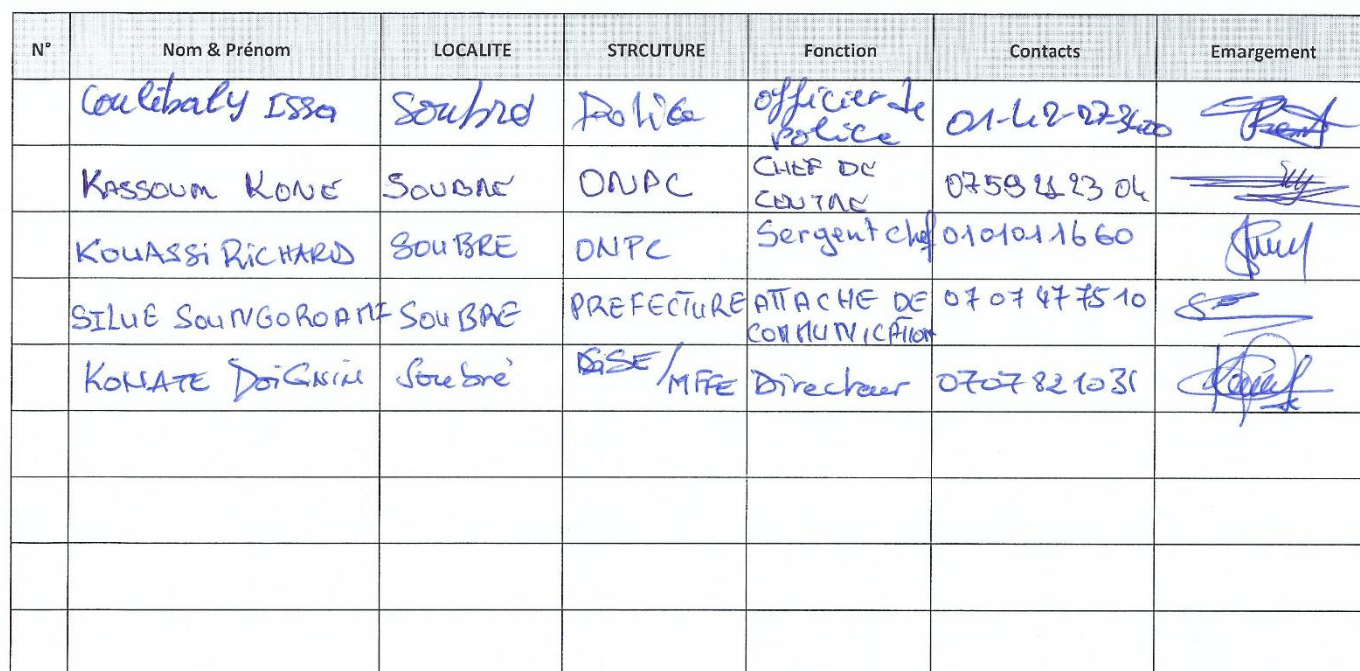 N° Nom & Prénom LOCALITE STRCUTURE Fonction Contacts Emargement
Coulibaly ISSa Soubré Police officier de police 01-42-27-34-00
KASSOUM KONE SOUBRE ONPC CHEF DE CENTRE 07 59 23 04
KOUASSI RICHARD SOUBRE ONPC Sergent chef 0101011660
SILUE SOUNGOROANE SOUBRE PREFECTURE ATTACHE DE COMMUNICATION 07 07 47 75 10
KONATE Soubré /MFFE Directeur 0707821031